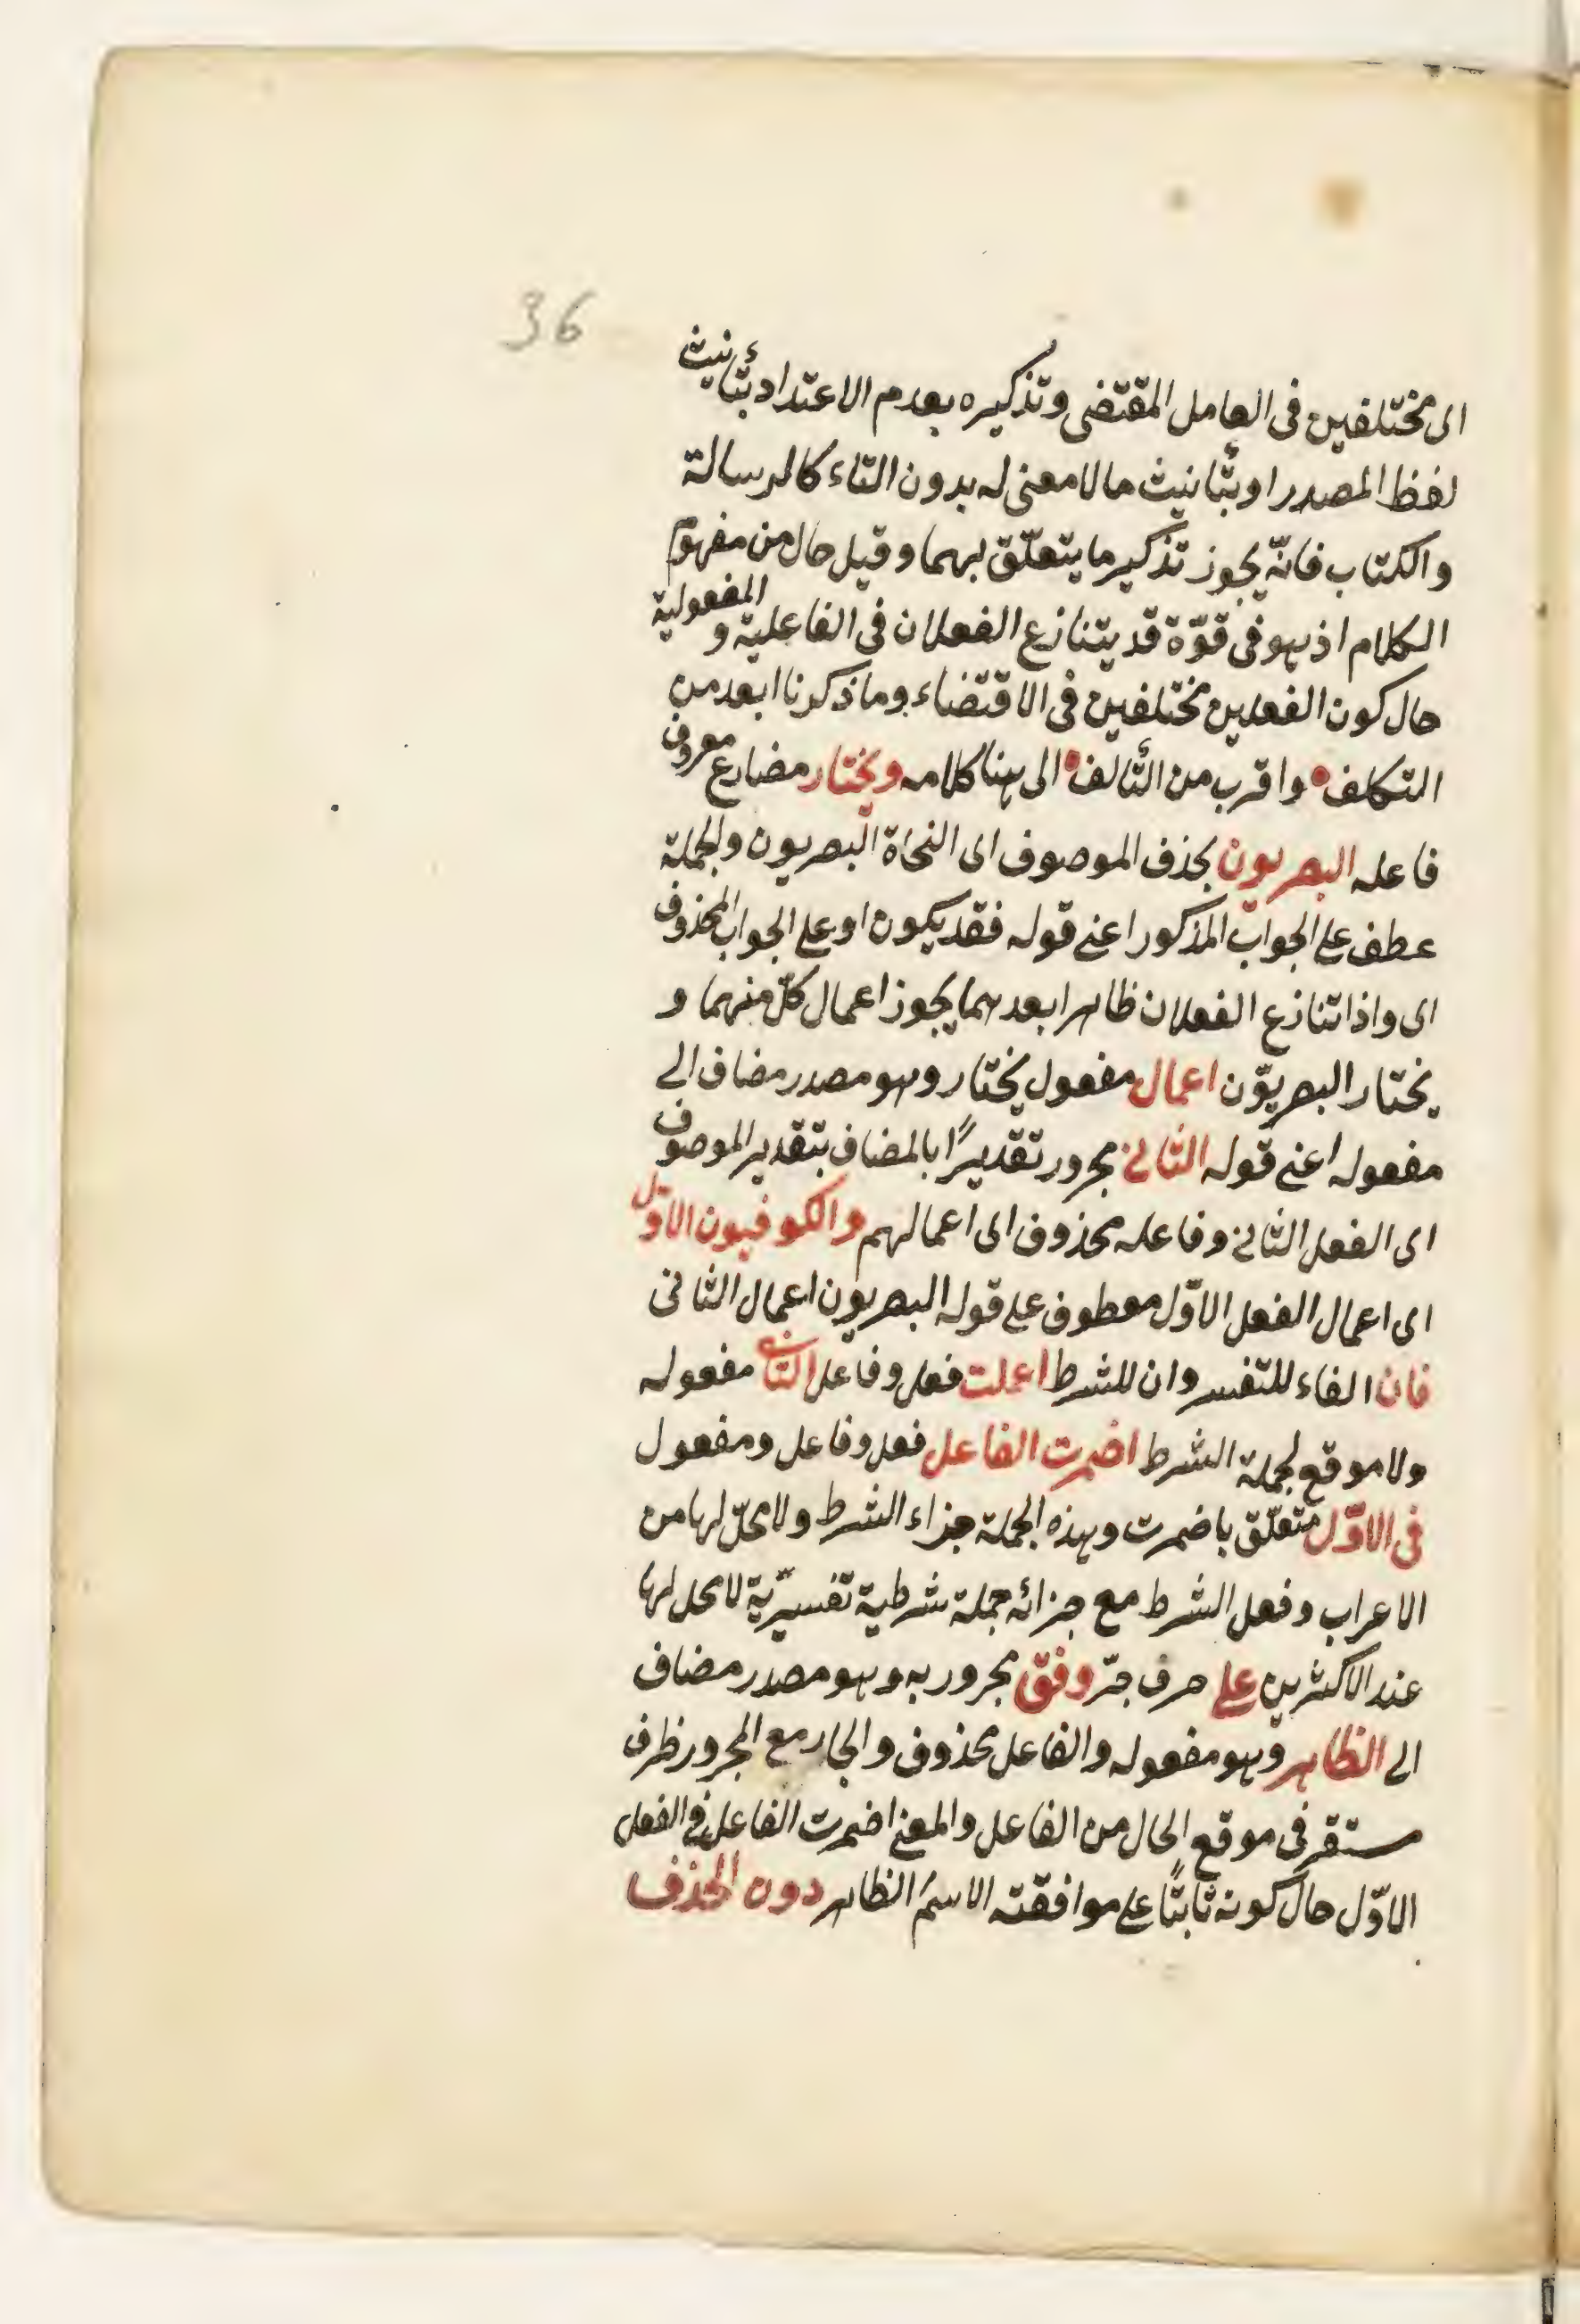 36
اى مختلفين فى العامل المقتضى وتذكيره بعدم الاعتداد بتأنيث
لفظ المصدر او بتأنيث ما لا معنى له بدون التاء كالرسالة
والكتاب فانّه يجوز تذكير ما يتعلّق بهما وقيل حال من مفهوم
الكلام اذ هو فى قوّة قد يتنازع الفعلان فى الفاعلية و المفعولية
حال كون الفعلين مختلفين فى الاقتضاء وما ذكرنا ابعد من
التكلف واقرب من التألف الى هنا كلامه ويختار مضارع معروف
فاعله البصريون بحذف الموصوف اى النحاة البصريون والجملة
عطف على الجواب المذكور اعنى قوله فقد يكون او على الجواب المحذوف
اى واذا تنازع الفعلان ظاهرا بعدهما يجوز اعمال كلّ منهما و
يختار البصريّون اعمال مفعول يختار وهو مصدر مضاف الى
مفعوله اعنى قوله الثانى مجرور تقديرًا بالمضاف بتقدير الموصوف
اى الفعل الثانى وفاعله محذوف اى اعمالهم والكوفيون الاوّل
اى اعمال الفعل الاوّل معطوف على قوله البصريون اعمال الثانى
فان الفاء للتفسير وان للشرط اعملت فعل وفاعل الثانى مفعوله
ولا موقع لجملة الشرط اضمرت الفاعل فعل وفاعل ومفعول
فى الاوّل متعلّق باضمرت وهذه الجملة جزاء الشرط ولا محلّ لها من
الاعراب وفعل الشرط مع جزائه جملة شرطية تفسيريّة لا محل لها
عند الاكثرين على حرف جرّ وفق مجرور به وهو مصدر مضاف
الى الظاهر وهو مفعوله والفاعل محذوف والجار مع المجرور ظرف
مستقر فى موقع الحال من الفاعل والمعنى اضمرت الفاعل فى الفعل
الاوّل حال كونه ثابتًا على موافقته الاسمَ الظاهر دون الحذف